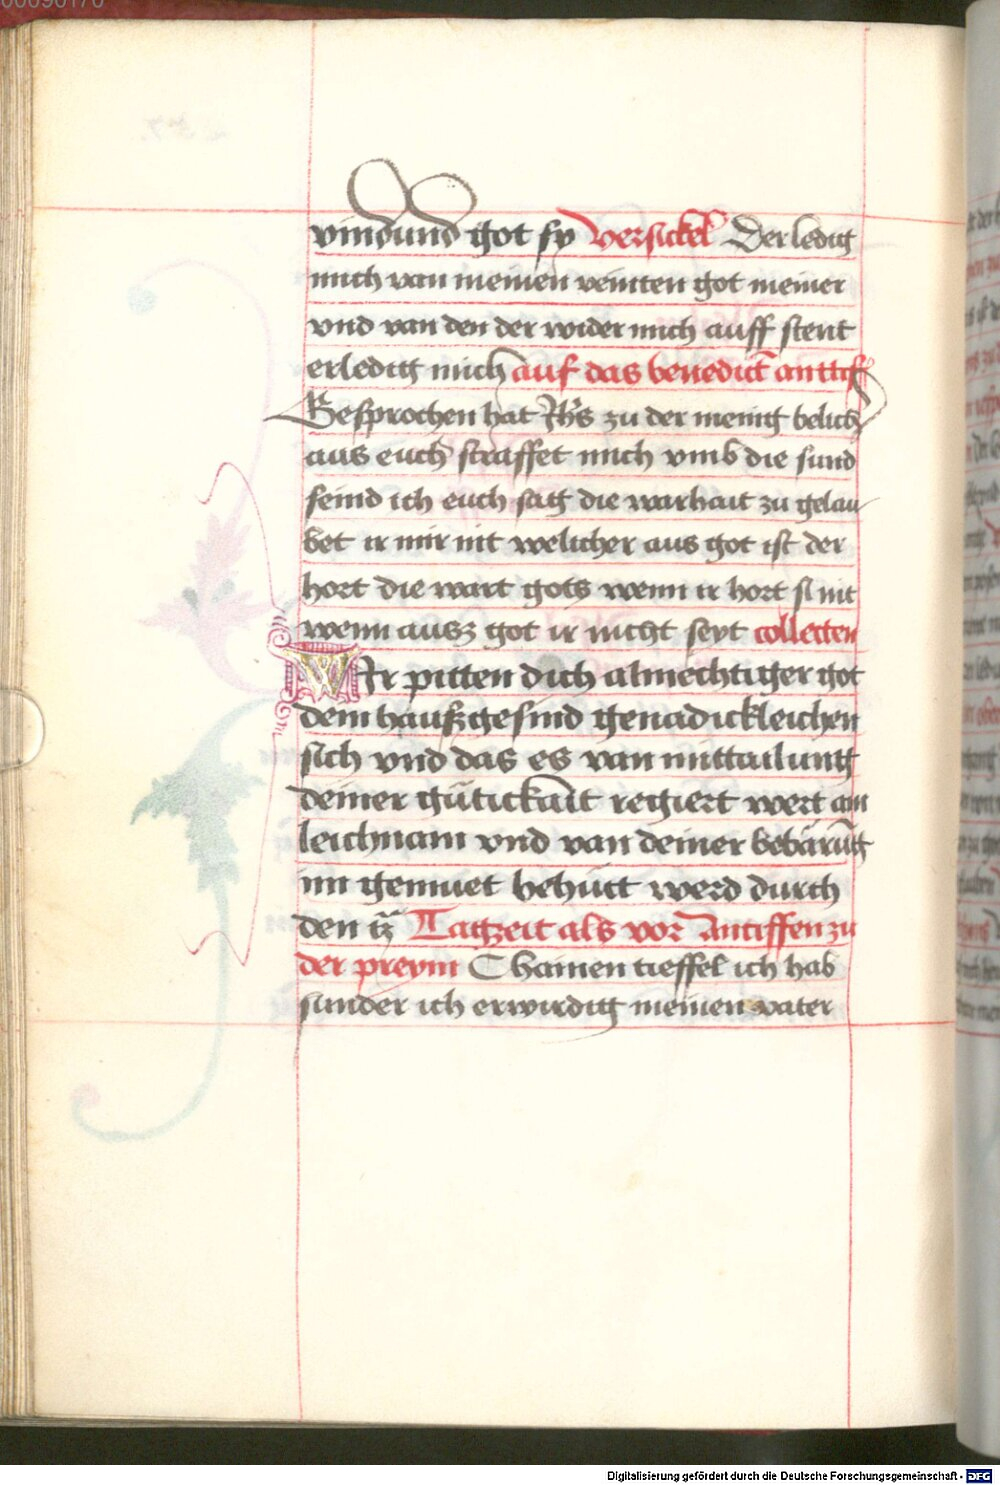 vmd und got sy Versickel Der ledig
mich van meinen veinten got meiner
vnd van den der wider mich auff stent
erledig mich auf das benedict antiff
Gesprochen hat Jhs zu der menig belich
aus euch straffet mich vmb die sund
seind ich euch sag die warhait zu gelau
bet ir mir nit welicher aus got ist der
hort die wart gots wenn ir hort si nit
wenn ausz got ir nicht seyt collecten
Wir pitten dich almechtiger got
dem haußgesind genadickleichen
sich vnd das es van mittailung
deiner gütickait regiert wert am
leichnam vnd van deiner bebarūg
im gemuet behütt werd durch
den Tagzeit als vor Antiffen zu
der preym Chainen tieffel ich hab
sunder ich erwirdig meinen vater
Digitalisierung gefördert durch die Deutsche Forschungsgemeinschaft - DFG